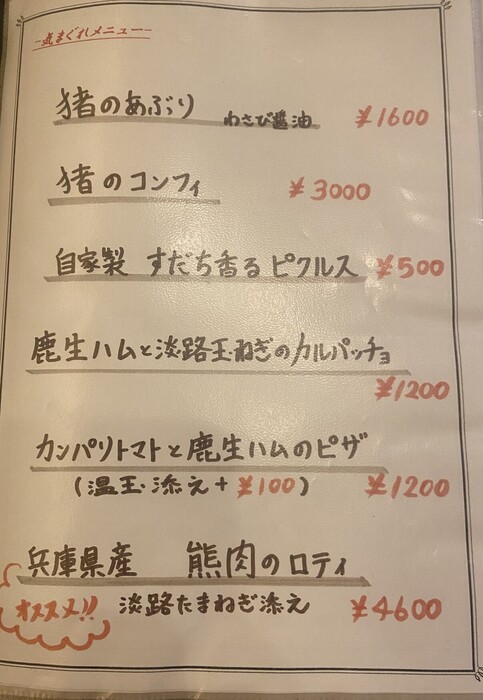 -気まぐれメニュー-
猪のあぶり わさび醤油 ¥1600
猪のコンフィ ¥3000
自家製 すだち香るピクルス ¥500
鹿生ハムと淡路玉ねぎのカルパッチョ
¥1200
カンパリトマトと鹿生ハムのピザ
(温玉添え+¥100) ¥1200
兵庫県産 熊肉のロティ
オススメ!! 淡路たまねぎ添え ¥4600